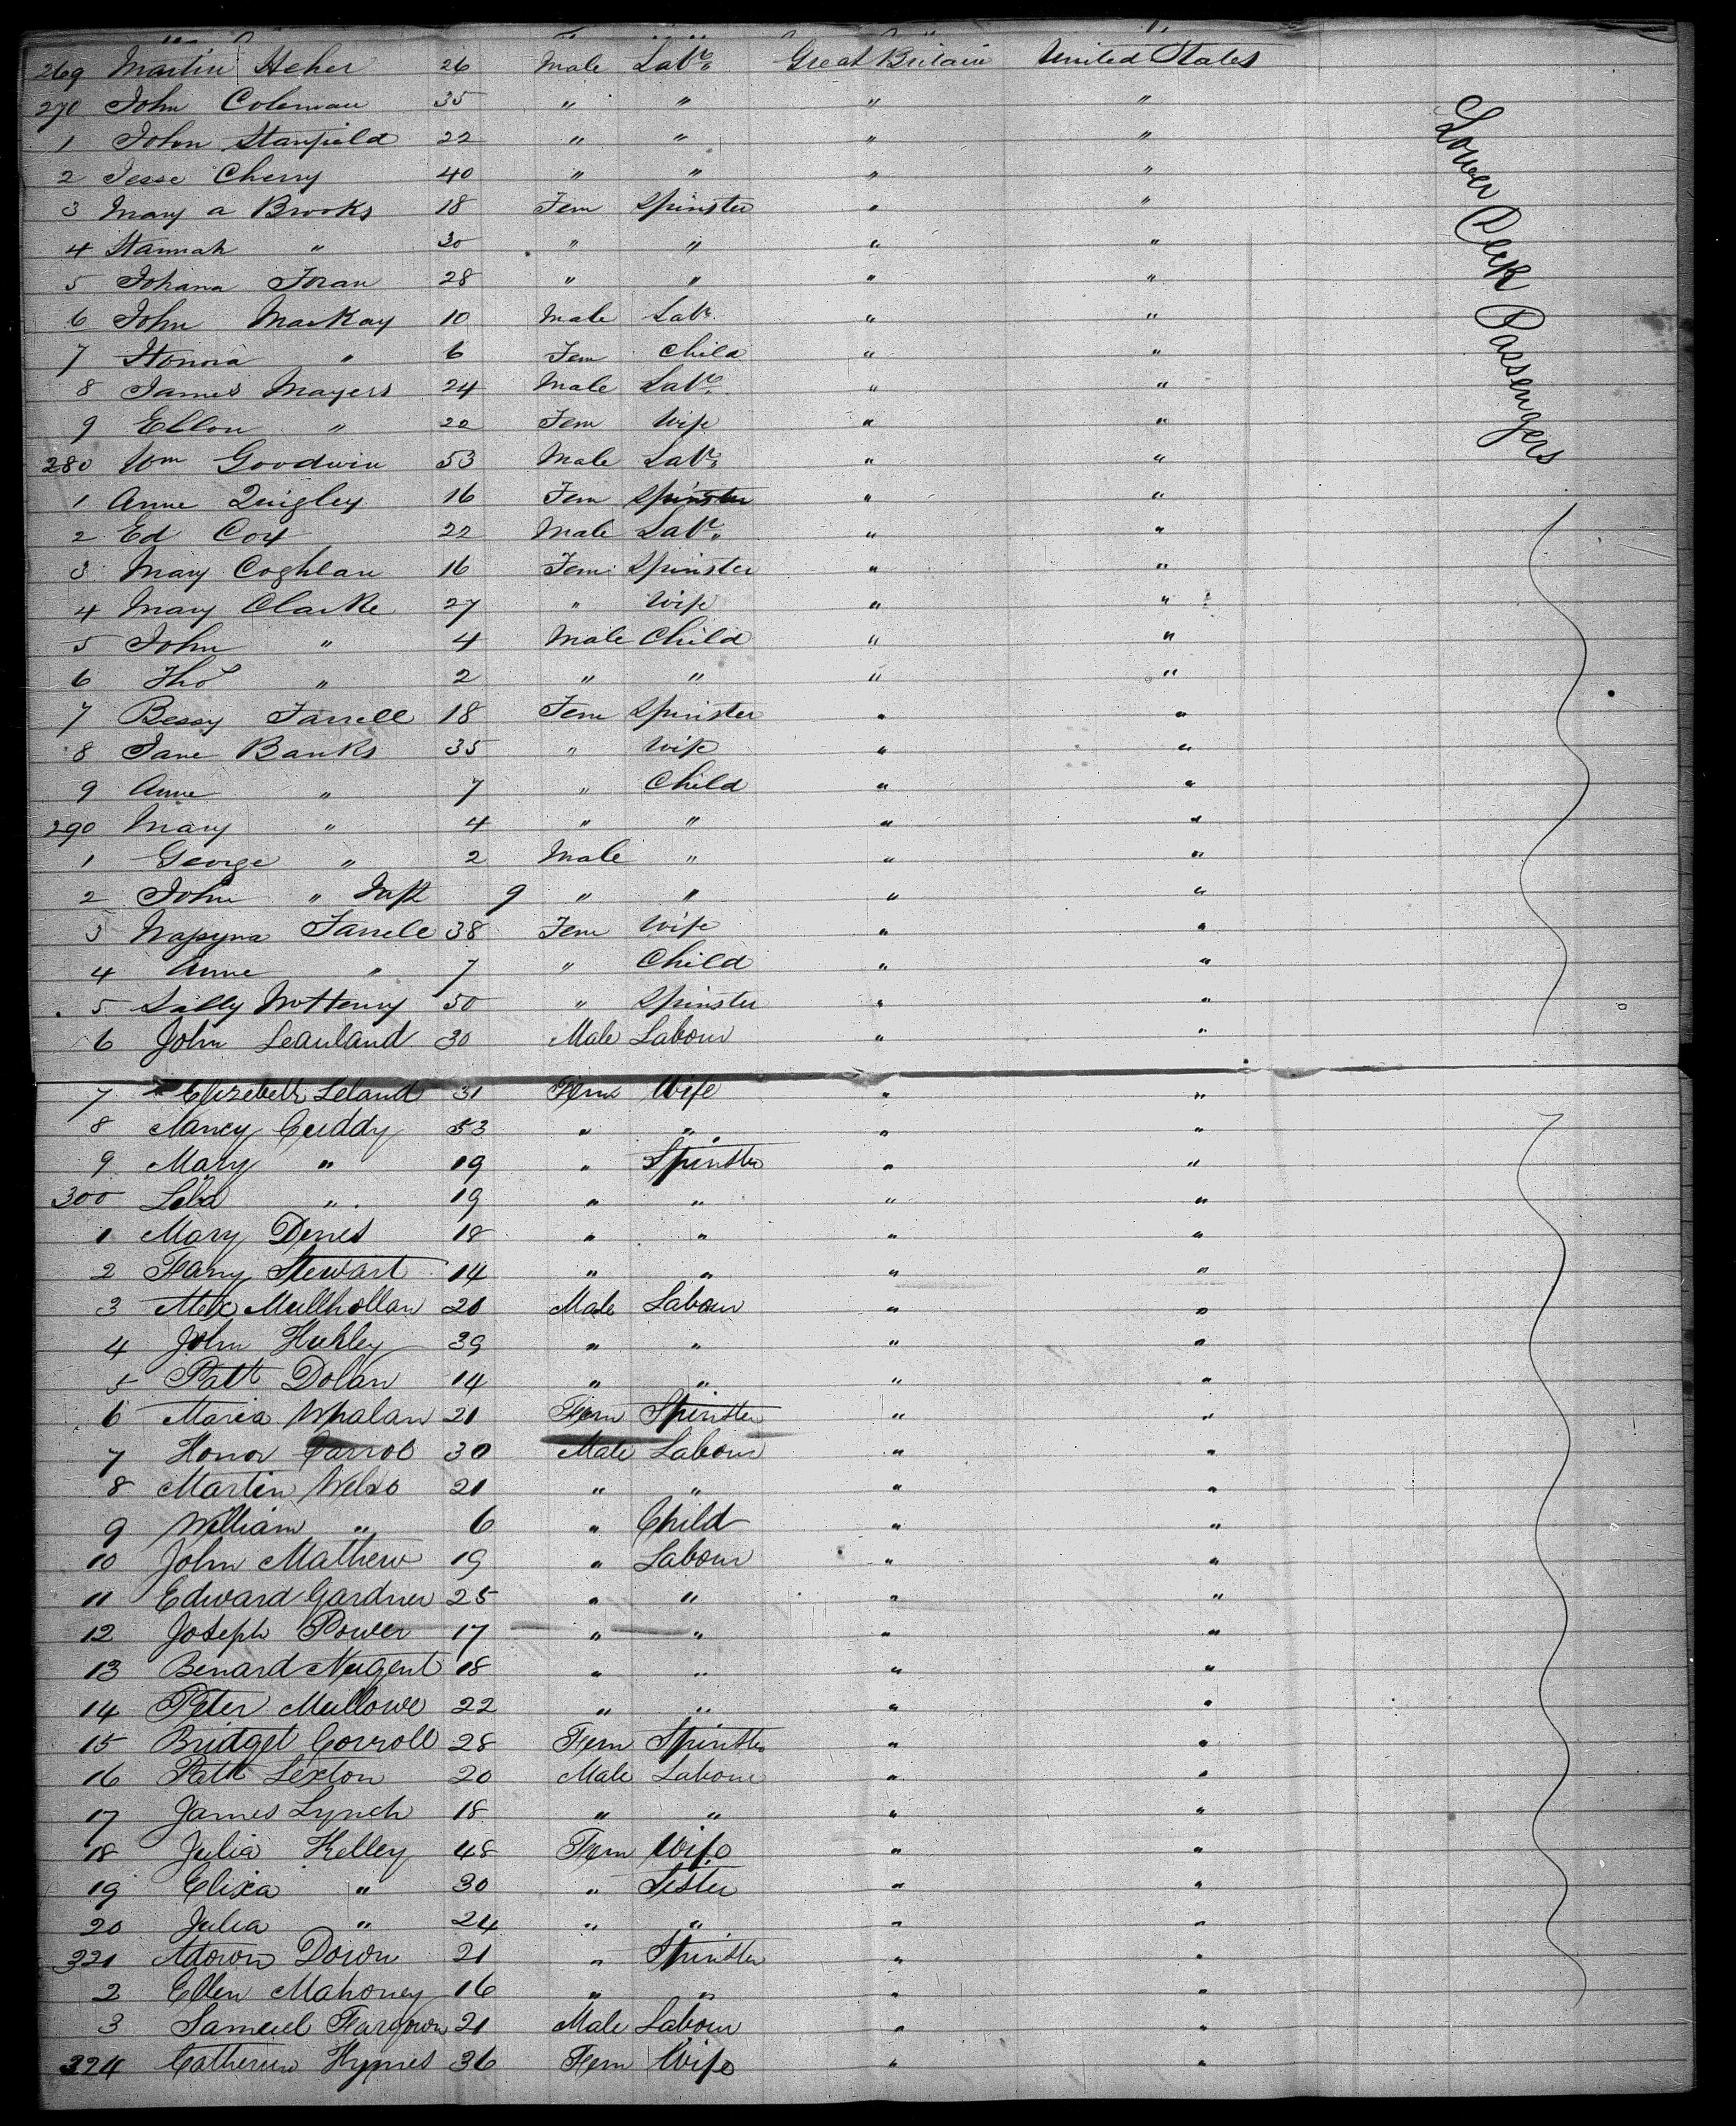 269 Martin Heher 26 Male Labr. Great Britain United States
270 John Coleman 35 " " " "
1 John Stanfield 22 " " " "
2 Jesse Cherry 40 " " " "
3 Mary a Brooks 18 Fem Spinster " "
4 Hannah " 30 " " " "
5 Johana Foran 28 " " " "
6 John MacKay 10 Male Labr " "
7 Honora " 6 Fem Child " "
8 James Mayers 24 Male Labr. " "
9 Ellon " 22 Fem Wife " "
280 Wm Goodwin 53 Male Labr. " "
1 Anne Quigley 16 Fem Spinster " "
2 Ed Cox 22 Male Labr. " "
3 Mary Coghlan 16 Fem Spinster " "
4 Mary Clarke 27 " Wife " "
5 John " 4 Male Child " "
6 Tho " 2 " " " "
7 Bessy Farrell 18 Fem Spinster " "
8 Jane Banks 35 " Wife " "
9 Anne " 7 " Child " "
290 Mary " 4 " " " "
1 George " 2 Male " " "
2 John " Inft 9 " " " "
3 Farrele 38 Fem Wife " "
4 Anne " 7 " Child " "
5 Sally McHenry 50 " Spinster " "
6 John Leauland 30 Male Labour " "
7 Elizebeth Leland 31 Fem Wife " "
8 Nancy Cuddy 53 " " " "
9 Mary " 19 " Spinster " "
300 " 19 " " " "
1 Mary Denes 18 " " " "
2 Fany Stewart 14 " " " "
3 Alex Mullhollan 20 Male Labour " "
4 John Huhley 39 " " " "
5 Patt Dolan 14 " " " "
6 Maria Whalan 21 Fem Spinster " "
7 Honor Carrol 30 Male Labour " "
8 Martin Welso 21 " " " "
9 William " 6 " Child " "
10 John Mathew 19 " Labour " "
11 Edward Gardner 25 " " " "
12 Joseph Power 17 " " " "
13 Benard Nugent 18 " " " "
14 Peter Mullowe 22 " " " "
15 Bridget Corroll 28 Fem Spinster " "
16 Patt Sexton 20 Male Labour " "
17 James Lynch 18 " " " "
18 Julia Kelley 48 Fem Wife " "
19 Eliza " 30 " Sister " "
20 Julia " 24 " " " "
321 Down 21 " Spinster " "
2 Ellen Mahoney 16 " " " "
3 Samuel Fargown 21 Male Labour " "
324 Catherin Hymes 36 Fem Wife " "
Lower Deck Passengers